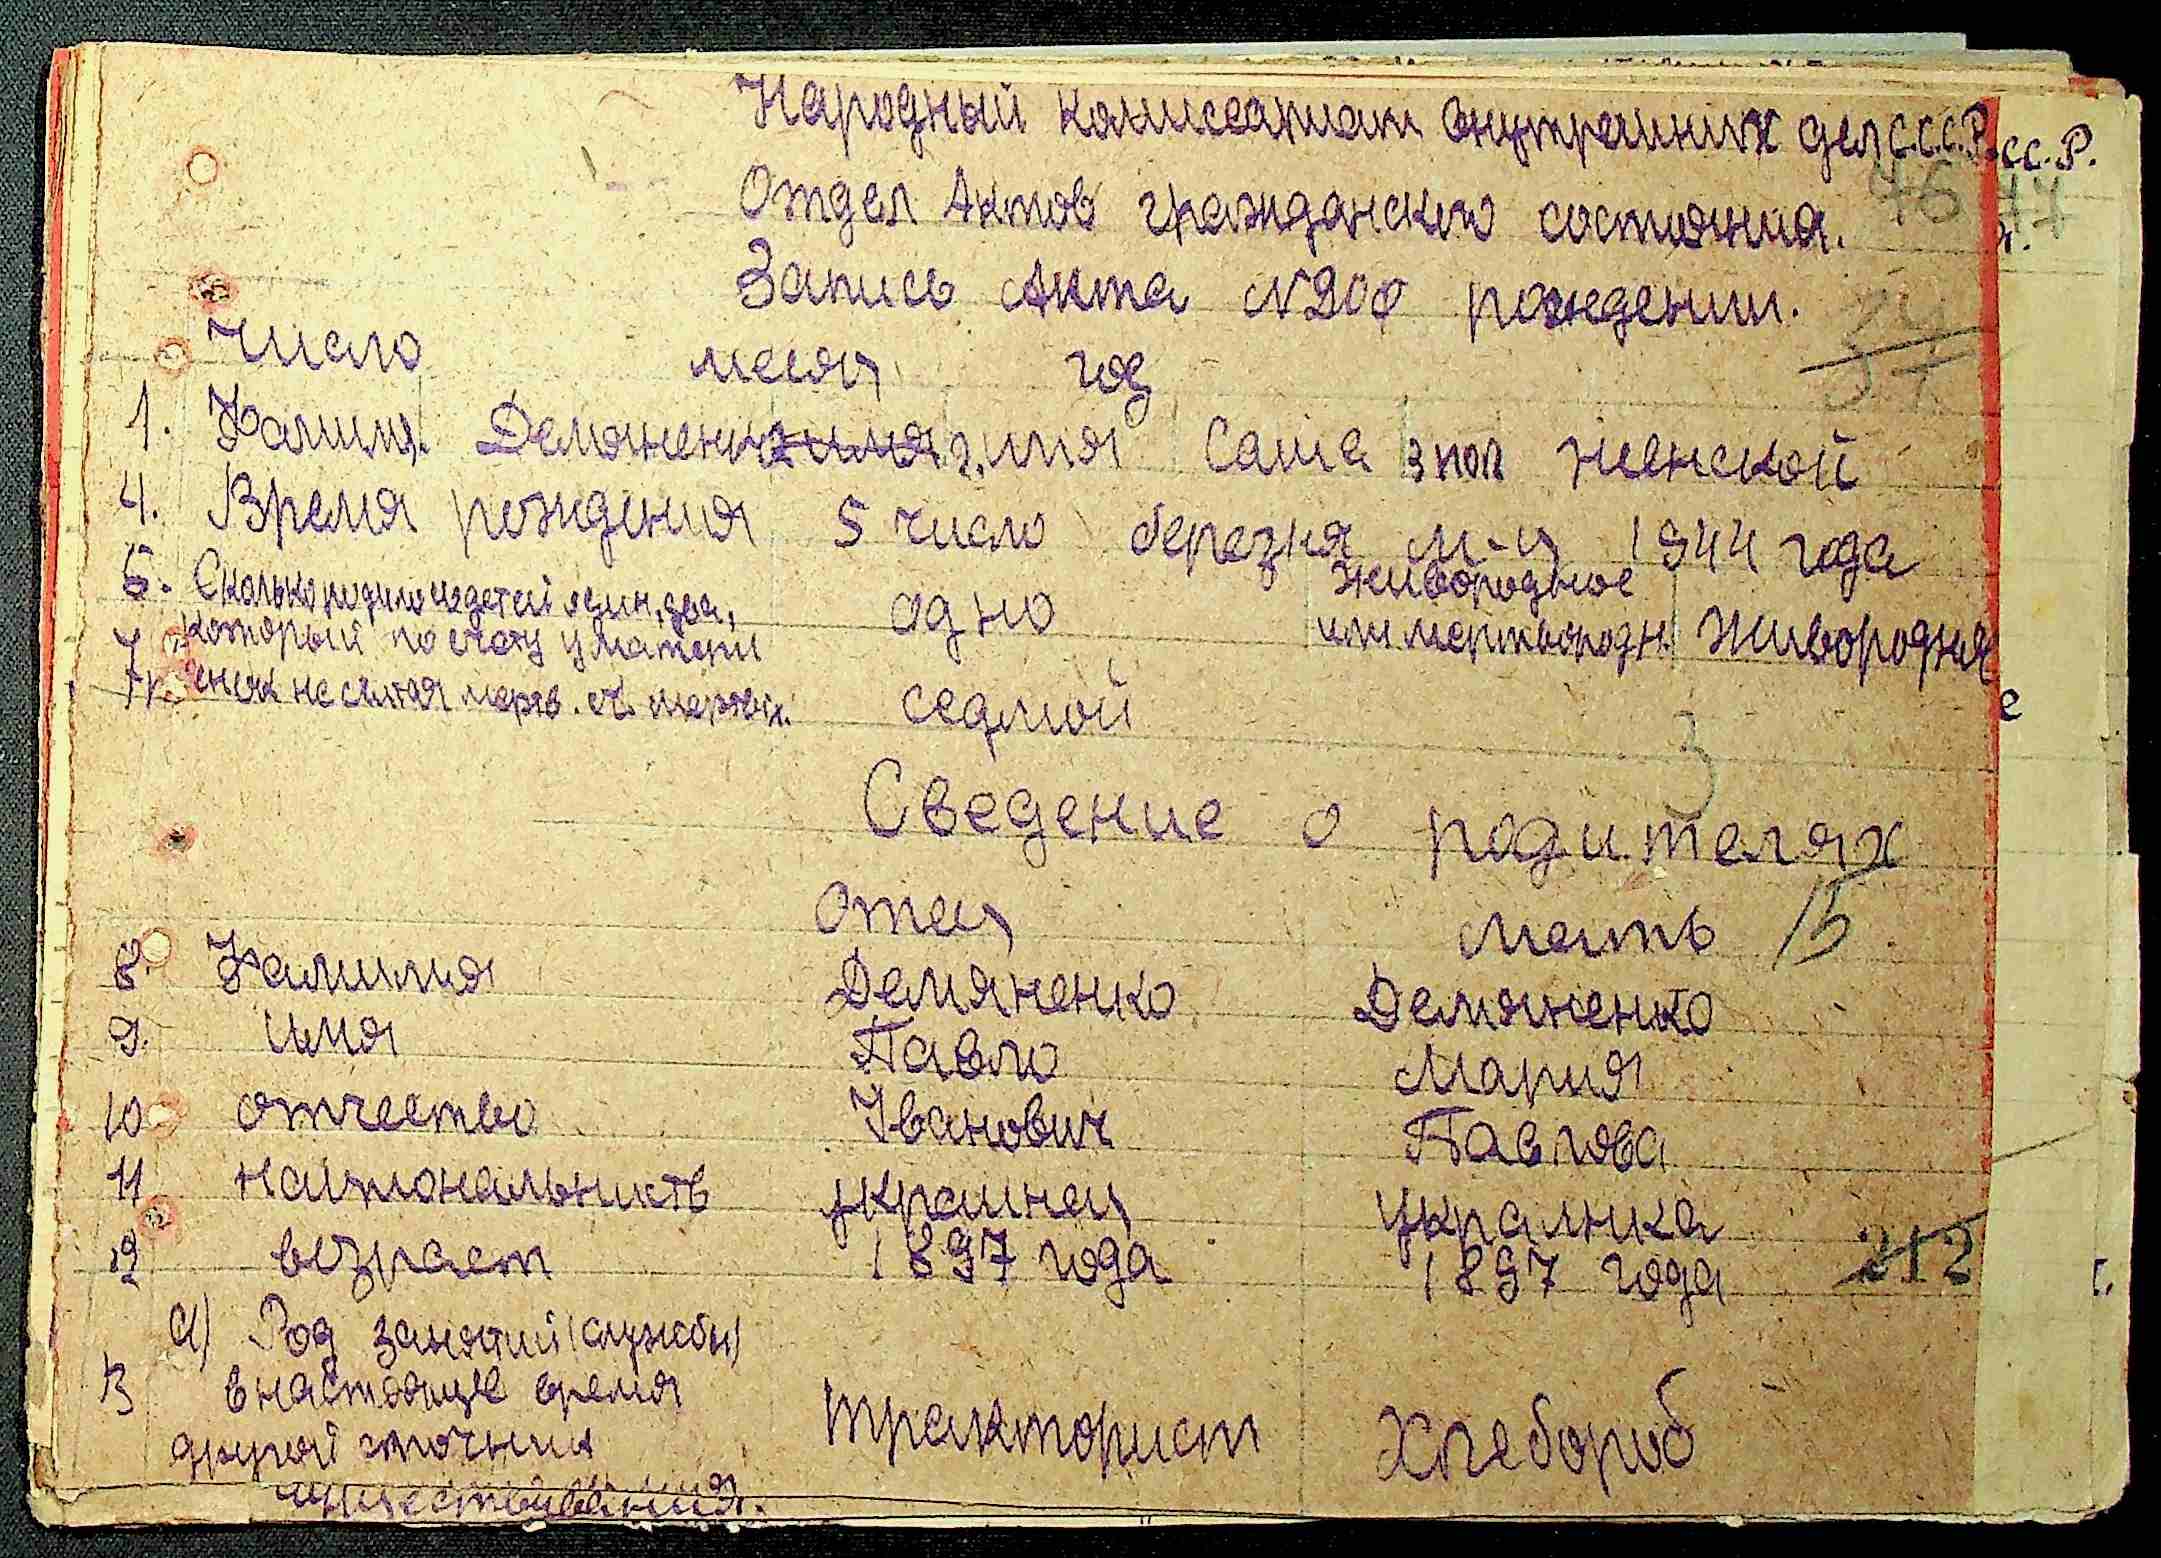 Народный комиссатиат внутрешних дел С.С.С.Р.
сс.Р.
Отдел Актов гражданского состояния. 76 77
Запись Акта №20 о рождении.
Число месяц год
1. Фамил. Демяненк 2. имя Саша 3 пол женской
4. Время рождения 5 число березня м-ц 1944 года
5. Сколько родилось детей один, два, одно живородное
или мертвородн. Живородния
7. который по счоту у матери
седмой
Сведение о родителях
Отец мать 15
8. Фамилия Демяненко Демяненко
9. имя Павло Мария
10 отчество Иванович Павлова
11 национальность украинец украинка
12 возраст 1897 года 1897 года 212
а) Род занятий (службы)
13 в настояще время тракторист Хлебороб
другой
существования.